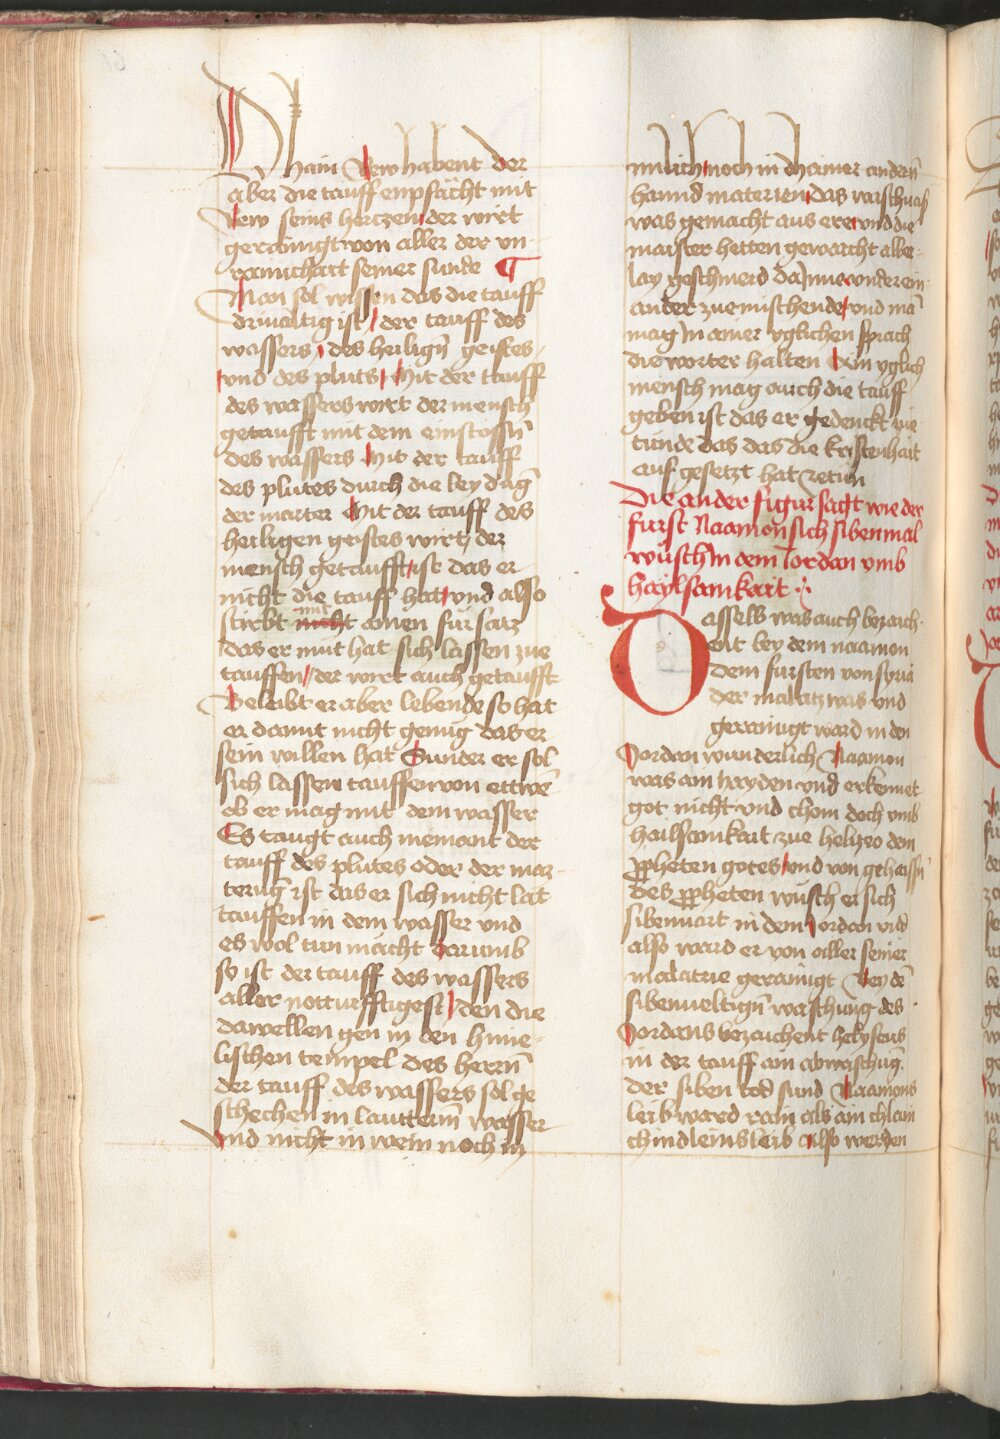 Dhain Rew habent der
aber die tauff enpfächt mit
Rew seins hertzen der wirt
gerainigt von aller der vn-
rainichait seiner sunde ¶
Man sol wissen das die tauff
driualtig ist / der tauff des
wassers / des heilign̄ geistes
vnd des pluts / Mit der tauff
des wassers wirt der mensch
getaufft mit dem einstossn̄
des wassers Mit der tauff
des plutes durch die leydūg
der marter Mit der tauff des
heiligen geistes wirt der
mensch getaufft / ist das er
nicht die tauff hat / vnd also
stirbt mit ainen fürsatz
das er mut hat sich lassen zue
tauffen / der wirt auch getaufft
Beleibt er aber lebende so hat
er damit nicht genüg das er
sein willen hat Sunder er sol
sich lassen tauffen von ettwē
ob er mag mit dem wasser
Es taugt auch niemant der
tauff des plutes oder der mar-
terūg ist das er sich nicht lät
tauffen in dem wasser vnd
es wol tun macht Darumb
so ist der tauff des wassers
aller notturfftigest / den die
dawellen gen in den hime-
lischen tempel des herrn̄
der tauff des wassers sol ge
schechen in lautterm̄ wasser
Vnd nicht in wein noch in
milich / noch in dhainer andern̄
hannd materien / das waschuas
was gemacht aus ere / vnd die
maister hetten gewarcht aller-
lay geschmeid darinne vnder ein-
ander zue mischende / vnd mā
mag in ainer yglichen sprach
die worter halten Ain yglich
mensch mag auch die tauff
geben ist das er gedenckt zue
tunde das das die kristenhait
auf gesetzt hat zetūn
Die ander figur sagt wie der
fürst Naamon sich sibenmal
wüsch in dem Iordan vmb
haylsamkait :
Dasselb was auch bezaich-
ent bey dem naamon
dem fürsten von syria
der malatz was vnd
gerainigt ward in den
Iordan wunderlich Naamon
was ain hayden vnd erkennet
got nicht vnd chom doch vmb
hailsamkait zue helyzeo dem
ppheten gotes / vnd von gehaissn̄
des ppheten wüsch er sich
sibenuart in dem Iordan vnd
also ward er von aller seiner
malatrie gerainigt Bey dē
sibenueltign̄ waschung des
Iordans bezaichent helyseus
in der tauff ain abwaschūg
der siben tod sund Naamons
leib ward rain als ain chlain
chindleins leib Also werden